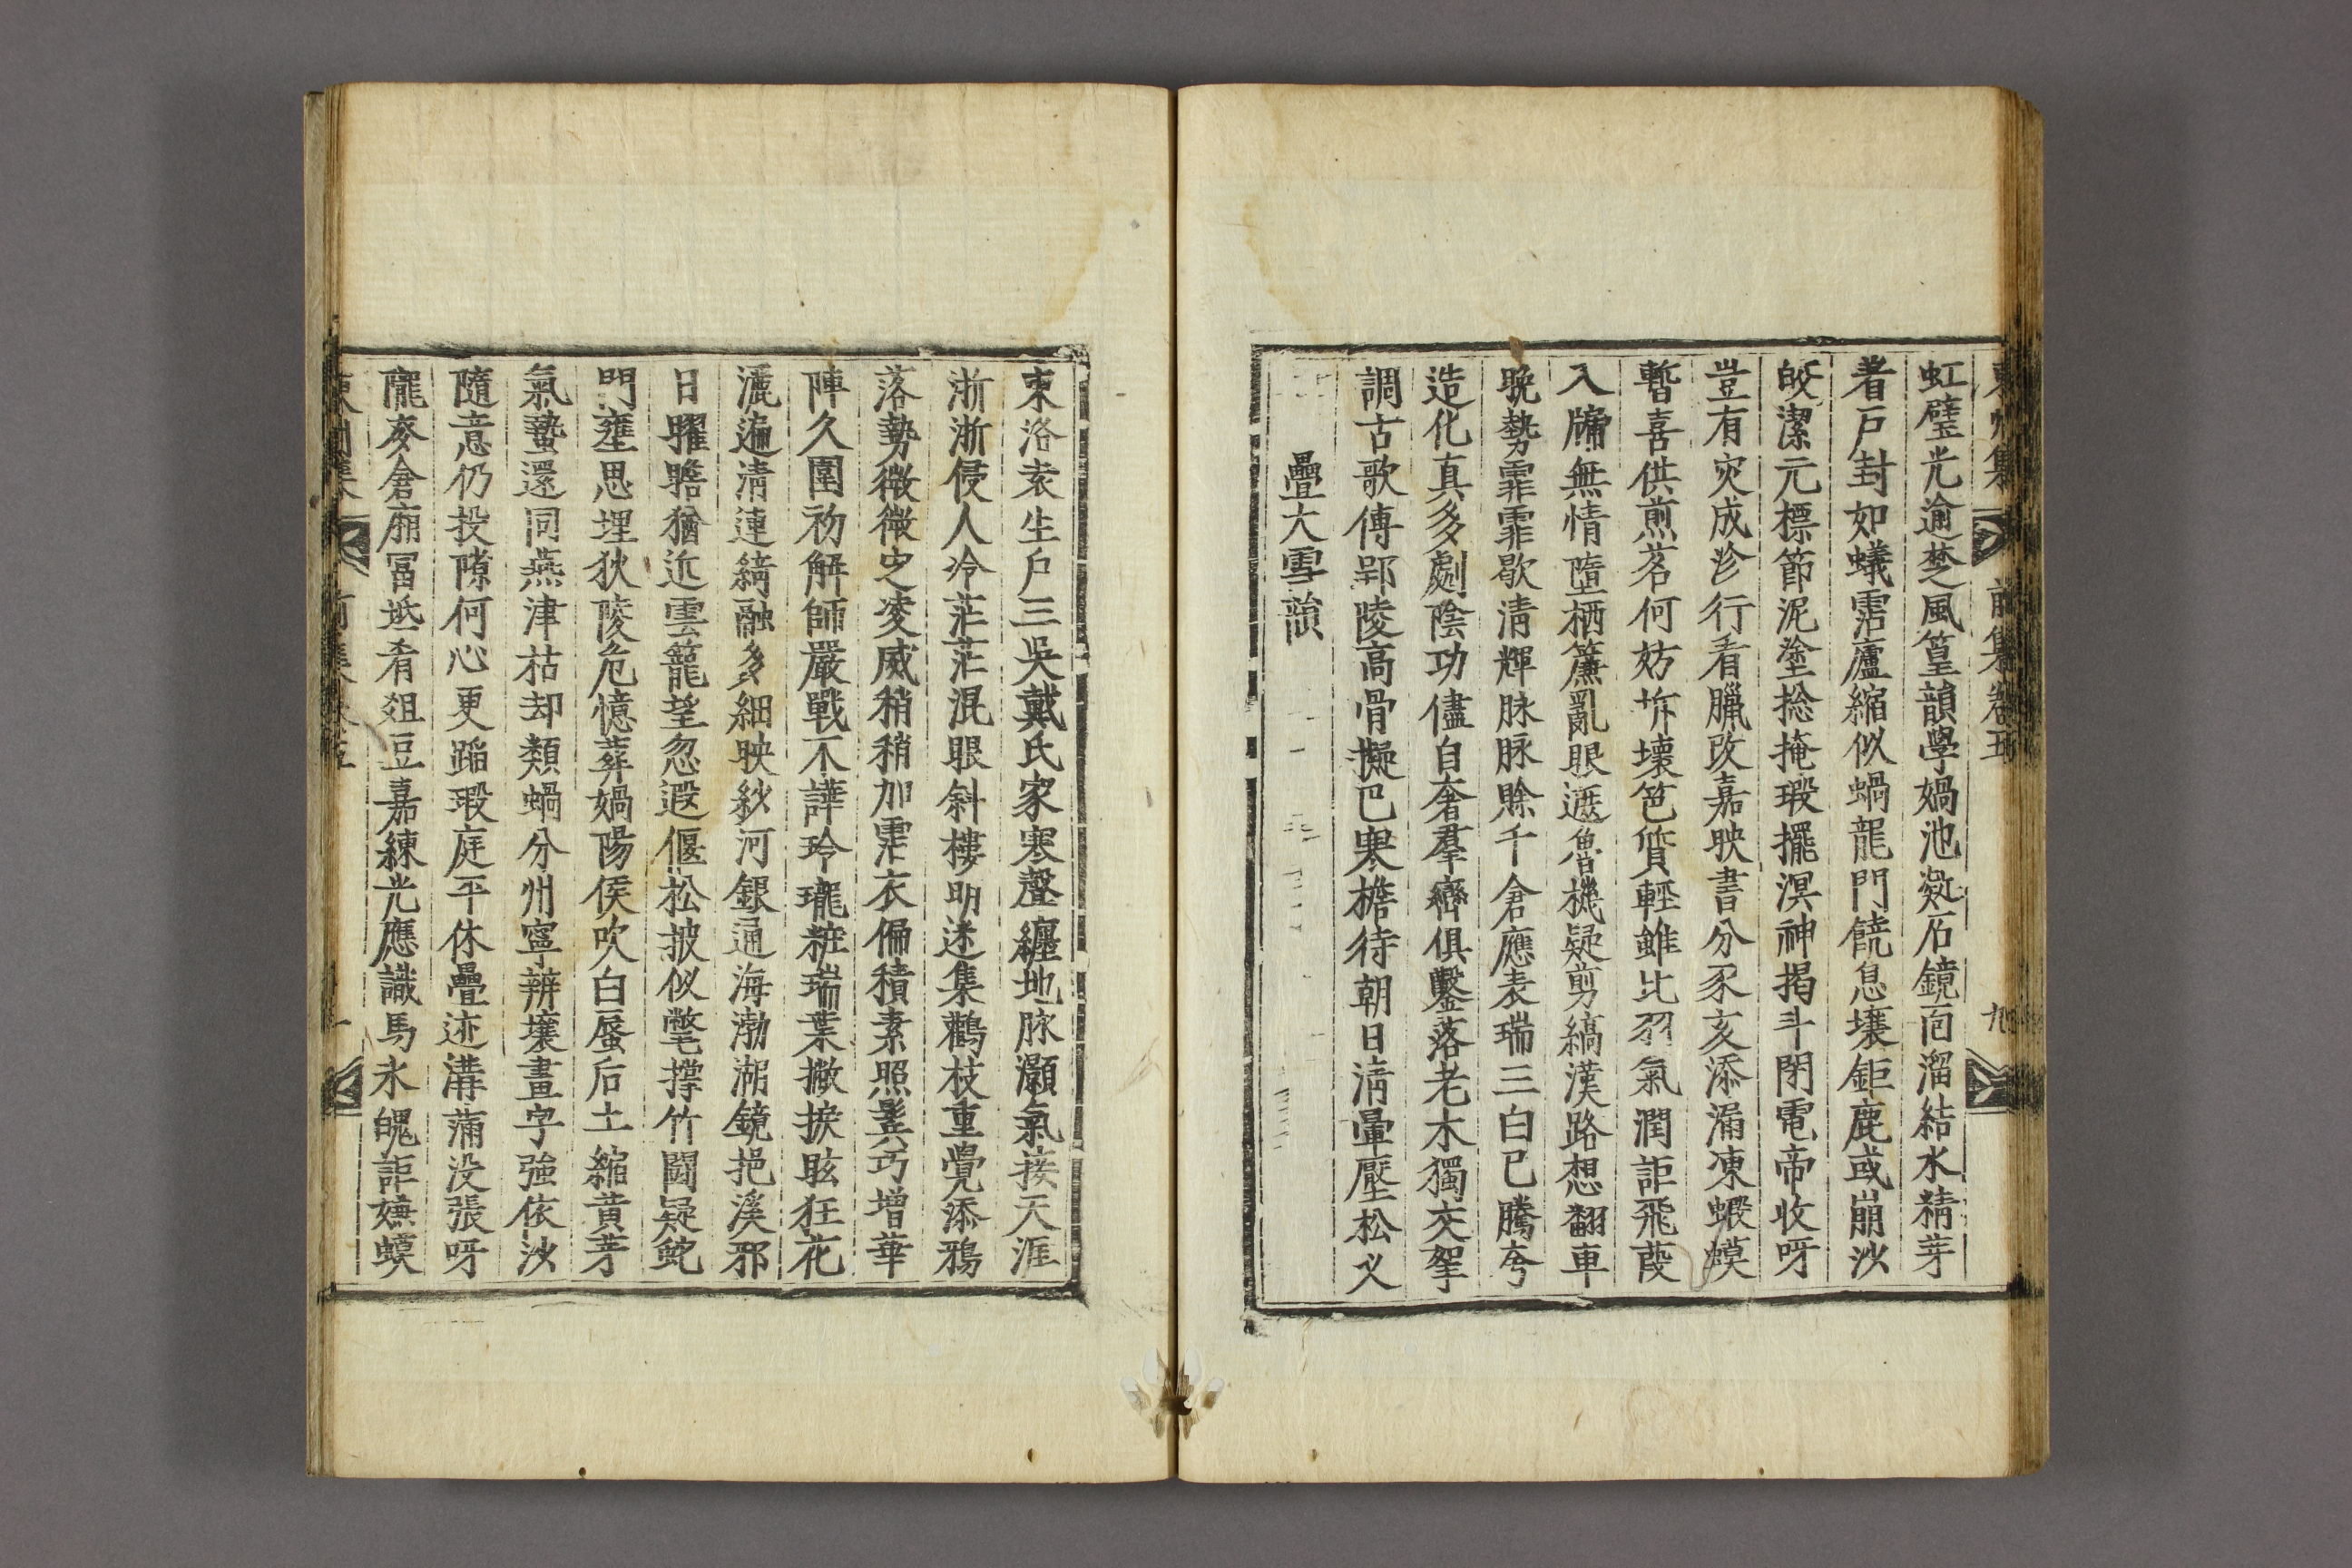 東州集 前集卷五 九
虹璧光逾楚風篁韻學媧池凝石鏡面溜結水精芽
着戶封如蟻霑廬縮似蝸龍門饒息壤鉅鹿或崩沙
皎潔元標節泥塗捴掩瑕擺溟神掲斗閉電帝收呀
豈有灾成沴行看臘改嘉映書分豕亥添漏凍蝦蟆
暫喜供煎茗何妨坼壞笆質輕雖比羽氣潤詎飛葭
入牗無情墮栖簾亂眼遮魯機疑剪縞漢路想翻車
晩勢霏霏歇清輝脉脉賖千倉應表瑞三白已騰夸
造化真多劇陰功儘自奢羣巒俱鑿落老木獨交挐
調古歌傳郢陵高骨擬巴寒檐待朝日淸暈壓松义
疊大雪韻
東洛袁生戶三吳戴氏家寒聲纏地脉灝氣接天涯
浙浙侵人冷茫茫混眼斜樓明迷集鶴枝重覺添鴉
落勢微微定凌威稍稍加霑衣偏積素照鬂巧增華
陣久圍初解師嚴戰不譁玲瓏粧瑞葉撇捩眩狂花
灑遍清連綺融多細映紗河銀通海渤湖鏡挹溪邪
日曜瞻猶近雲籠望忽遐偃松披似氅撑竹鬪疑鉈
門壅思埋狄陵危憶葬媧陽侯吹白蜃后土縮黄芽
氣蟄還同燕津枯却類蝸分州寧辨壤畫字強依沙
隨意仍投隙何心更蹈瑕庭平休疊迹溝滿没張呀
龐麥倉廂冨坻肴爼豆嘉練光應識馬氷魄詎嫌蟆